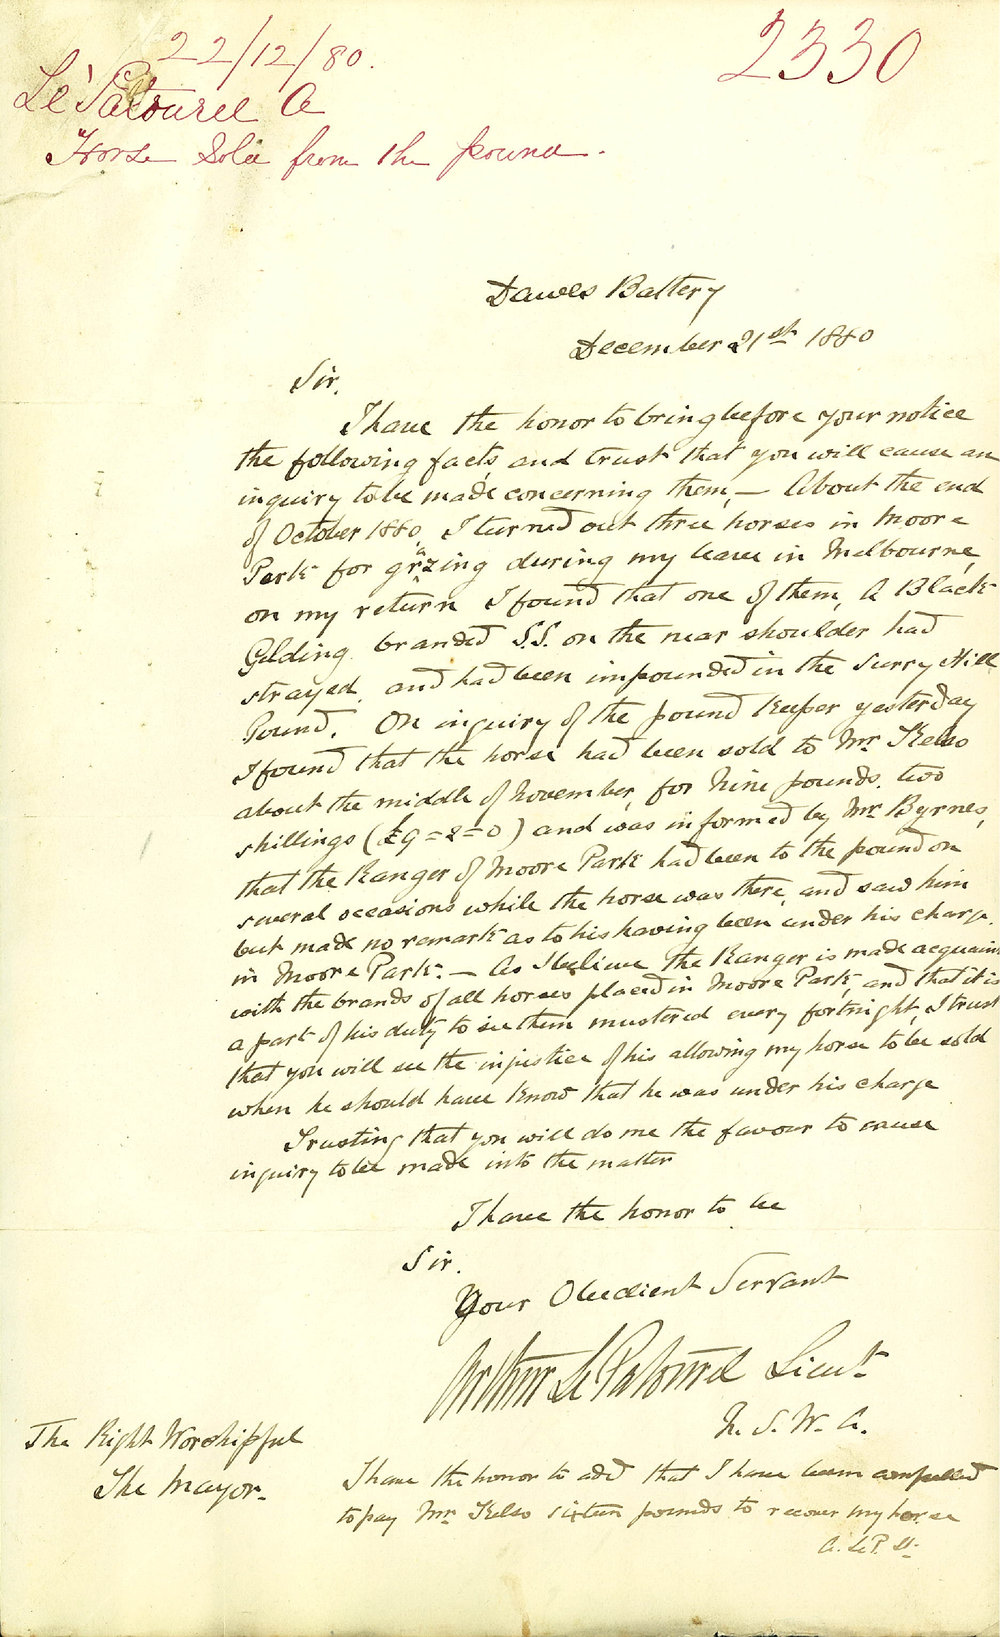 22/12/80.
2330
Le Patourel A
Horse Sold from the pound.
Dawes Battery
December 21st 1880
Sir,
I have the honor to bring before your notice
the following facts and trust that you will cause an
inquiry to be made concerning them, — About the end
of October 1880, I turned out three horses in Moore
Park for grazing during my leave in Melbourne,
on my return I found that one of them, A Black
Gelding branded S.S. on the near shoulder had
strayed, and had been impounded in the Surry Hill
Pound. On inquiry of the pound Keeper yesterday
I found that the horse had been sold to Mr Kelso
about the middle of November, for Nine pounds, two
shillings (£9=2=0) and was informed by Mr Byrnes,
that the Ranger of Moore Park had been to the pound on
several occasions while the horse was there, and saw him
but made no remark as to his having been under his charge
in Moore Park. — As I believe the Ranger is made acquain
with the brands of all horses placed in Moore Park, and that it is
a part of his duty to see them mustered every fortnight, I trust
that you will see the injustice of his allowing my horse to be sold
when he should have know that he was under his charge
Trusting that you will do me the favour to cause
inquiry to be made into the matter
I have the honor to be
Sir.
Your Obedient Servant
Arthur Le Patourel Lieut
N. S. W. A.
The Right Worshipful
The Mayor.
I have the honor to add that I have been compelled
to pay Mr Kelso sixteen pounds to recover my horse
A. Le P. Lt